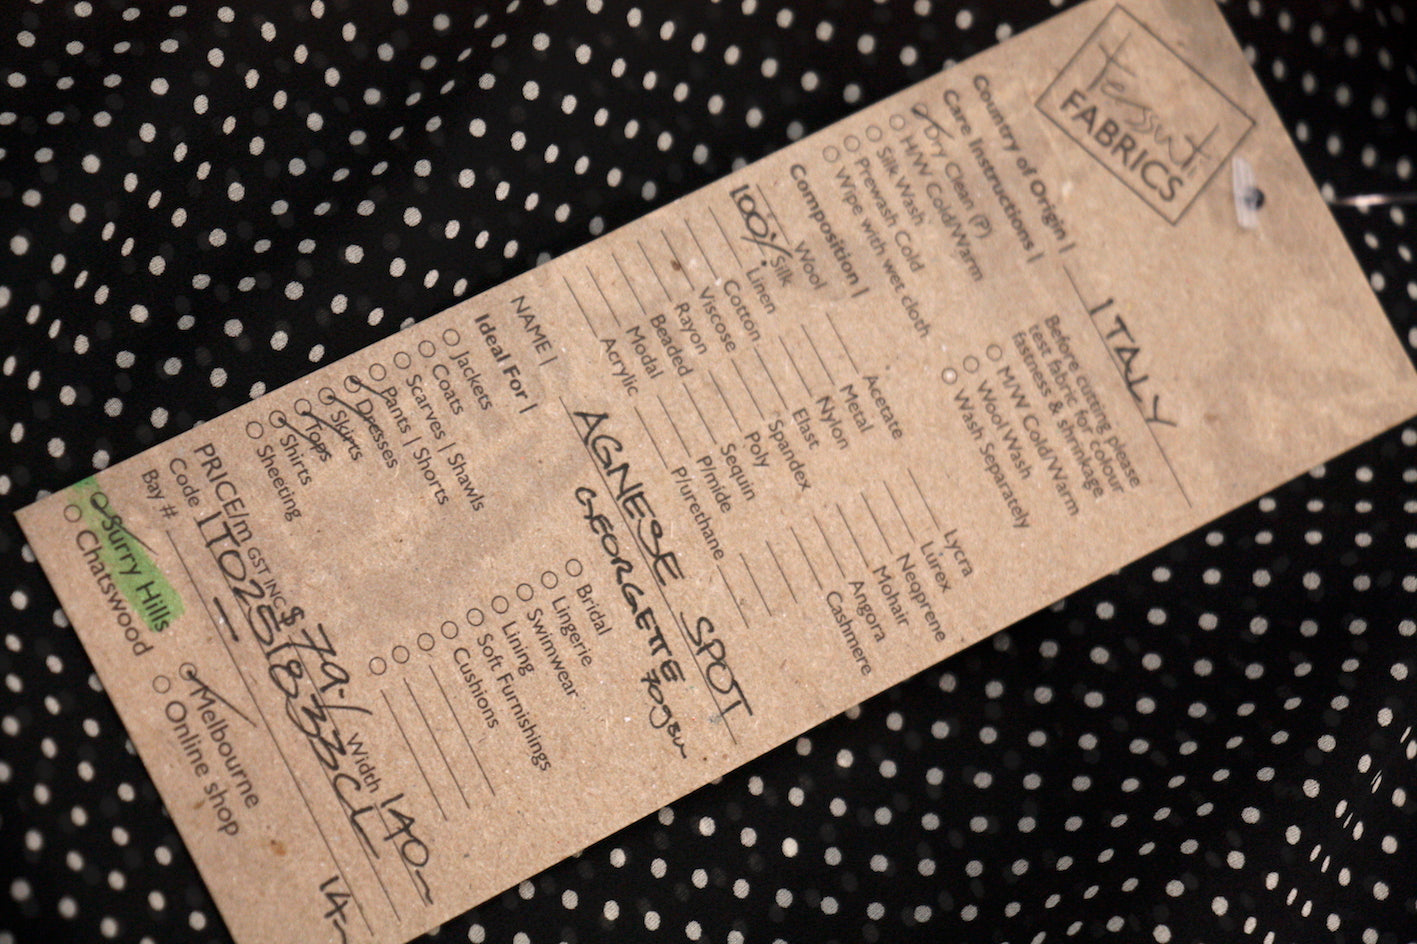 Tessuti
FABRICS
Country of Origin | ITALY
Care Instructions |
Dry Clean (P)
H/W Cold/Warm
Silk Wash
Prewash Cold
Wipe with wet cloth
Before cutting please
test fabric for colour
fastness & shrinkage
M/W Cold/Warm
Wool Wash
Wash Separately
Composition |
Wool Acetate Lycra
100% Silk Metal Lurex
Linen Nylon Neoprene
Cotton Elast Mohair
Viscose Spandex Angora
Rayon Poly Cashmere
Beaded Sequin
Modal P/mide
Acrylic P/urethane
NAME | AGNESE SPOT
GEORGETTE 70gsm
Ideal For |
Jackets
Coats
Scarves | Shawls
Pants | Shorts
Dresses
Skirts
Tops
Shirts
Sheeting
Bridal
Lingerie
Swimwear
Lining
Soft Furnishings
Cushions
PRICE/m GST INC $ 79.- Width 140
Code
Bay #
Surry Hills Melbourne
Chatswood Online shop